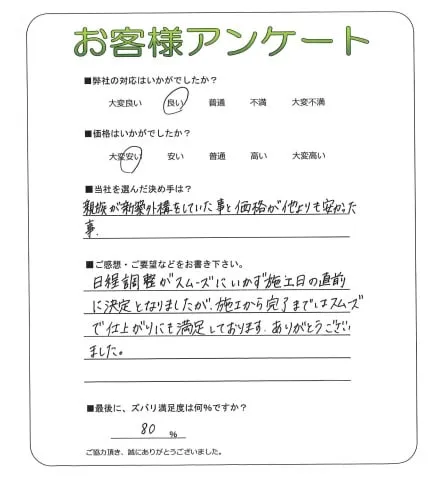 お客様アンケート
■弊社の対応はいかがでしたか?
大変良い 良い 普通 不満 大変不満
■価格はいかがでしたか?
大変安い 安い 普通 高い 大変高い
■当社を選んだ決め手は?
親族が新築外構をしていた事と価格が他よりも安かった
事.
■ご感想・ご要望などをお書き下さい。
日程調整がスムーズにいかず施工日の直前
に決定となりましたが、施工から完了まではスムーズ
で仕上がりにも満足しております。ありがとうござい
ました。
■最後に、ズバリ満足度は何%ですか?
80 %
ご協力頂き、誠にありがとうございました。